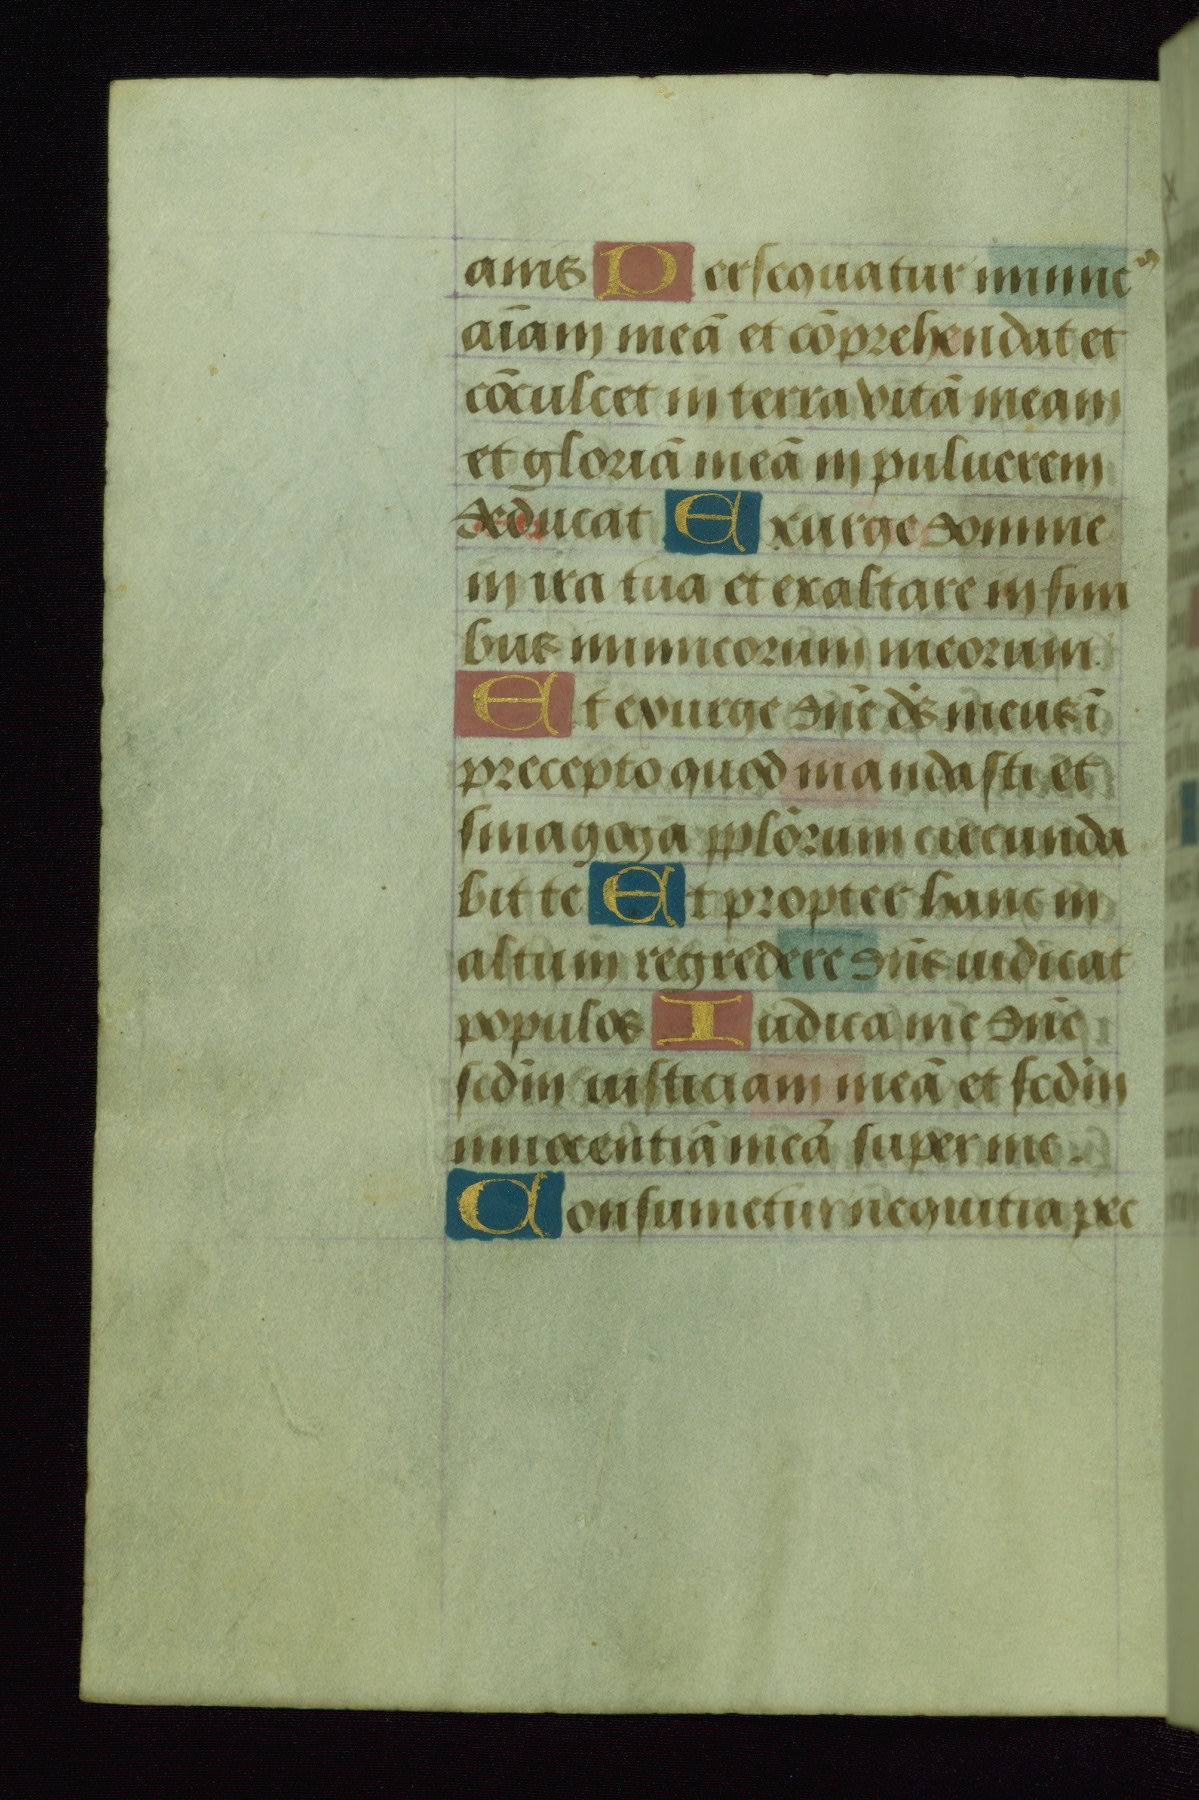 anis Persequatur inimic⁹
aīam meā et cōprehendat et
cōculcet in terra vitā meam
et gloriā meā in puluerem
deducat Exurge domine
in ira tua et exaltare in fini
bus inimicorum meorum.
Et exurge dn̄e ds̄ meus ī
precepto quod mandasti et
sinagoga pplōrum circunda
bit te Et propter hanc in
altum regredere dn̄s iudicat
populos Iudica me dn̄e
scdm̄ iusticiam meā et scdm̄
innocentiā meā super me.
Consumetur nequitia pec